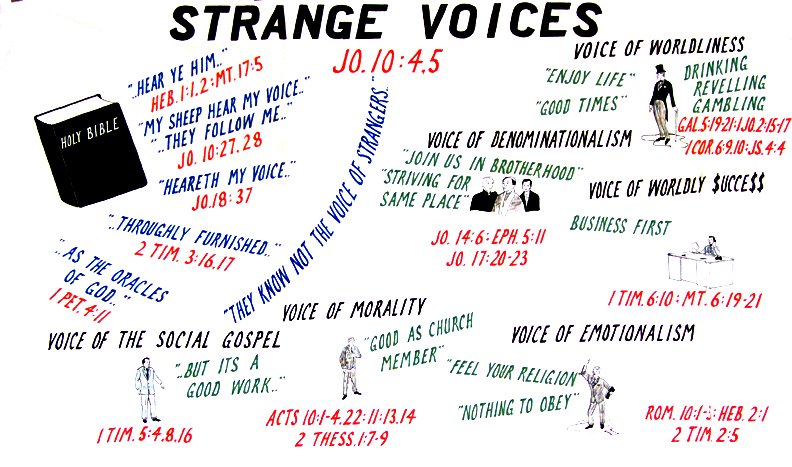 STRANGE VOICES
JO. 10:4,5
"..HEAR YE HIM.."
HEB. 1:1,2: MT. 17:5
"MY SHEEP HEAR MY VOICE..
"..THEY FOLLOW ME.."
JO. 10:27,28
"HEARETH MY VOICE.."
JO. 18:37
"..THROUGHLY FURNISHED.."
2 TIM. 3:16,17
"..AS THE ORACLES
OF GOD.."
1 PET. 4:11
HOLY BIBLE
"THEY KNOW NOT THE VOICE OF STRANGERS.."
VOICE OF WORLDLINESS
"ENJOY LIFE"
"GOOD TIMES"
DRINKING
REVELLING
GAMBLING
GAL. 5:19-21: 1 JO. 2:15-17
1 COR. 6:9,10: JS. 4:4
VOICE OF DENOMINATIONALISM
"JOIN US IN BROTHERHOOD"
"STRIVING FOR
SAME PLACE"
JO. 14:6: EPH. 5:11
JO. 17:20-23
VOICE OF WORLDLY $UCCE$$
BUSINESS FIRST
1 TIM. 6:10: MT. 6:19-21
VOICE OF THE SOCIAL GOSPEL
"..BUT ITS A
GOOD WORK.."
1 TIM. 5:4,8,16
VOICE OF MORALITY
"GOOD AS CHURCH
MEMBER"
ACTS 10:1-4,22: 11:13,14
2 THESS. 1:7-9
VOICE OF EMOTIONALISM
"FEEL YOUR RELIGION
"NOTHING TO OBEY"
ROM. 10:1-3: HEB. 2:1
2 TIM. 2:5